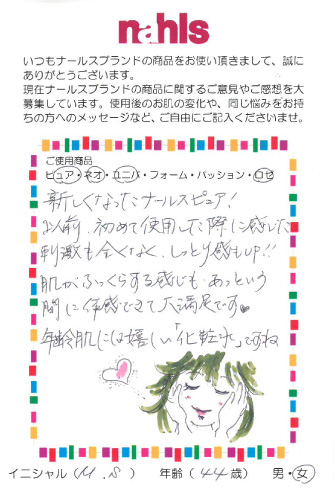 nahls
いつもナールスブランドの商品をお使い頂きまして、誠に
ありがとうございます。
現在ナールスブランドの商品に関するご意見やご感想を大
募集しています。使用後のお肌の変化や、同じ悩みをお持
ちの方へのメッセージなど、ご自由にご記入くださいませ。
ご使用商品
ピュア・ネオ・ユニバ・フォーム・パッション・ロゼ
新しくなったナールスピュア!
以前、初めて使用した際に感じた
刺激も全くなく、しっとり感もUP!!
肌がふっくらする感じも、あっという
間に体感できて大満足です♥
年齢肌には嬉しい「化粧水」ですね
イニシャル(M.S) 年齢(44歳) 男・女